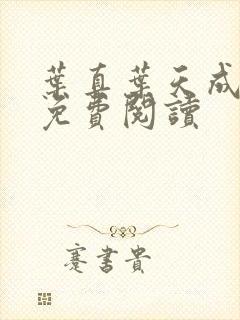 葉真葉天成
免費閱讀
蹇書貴